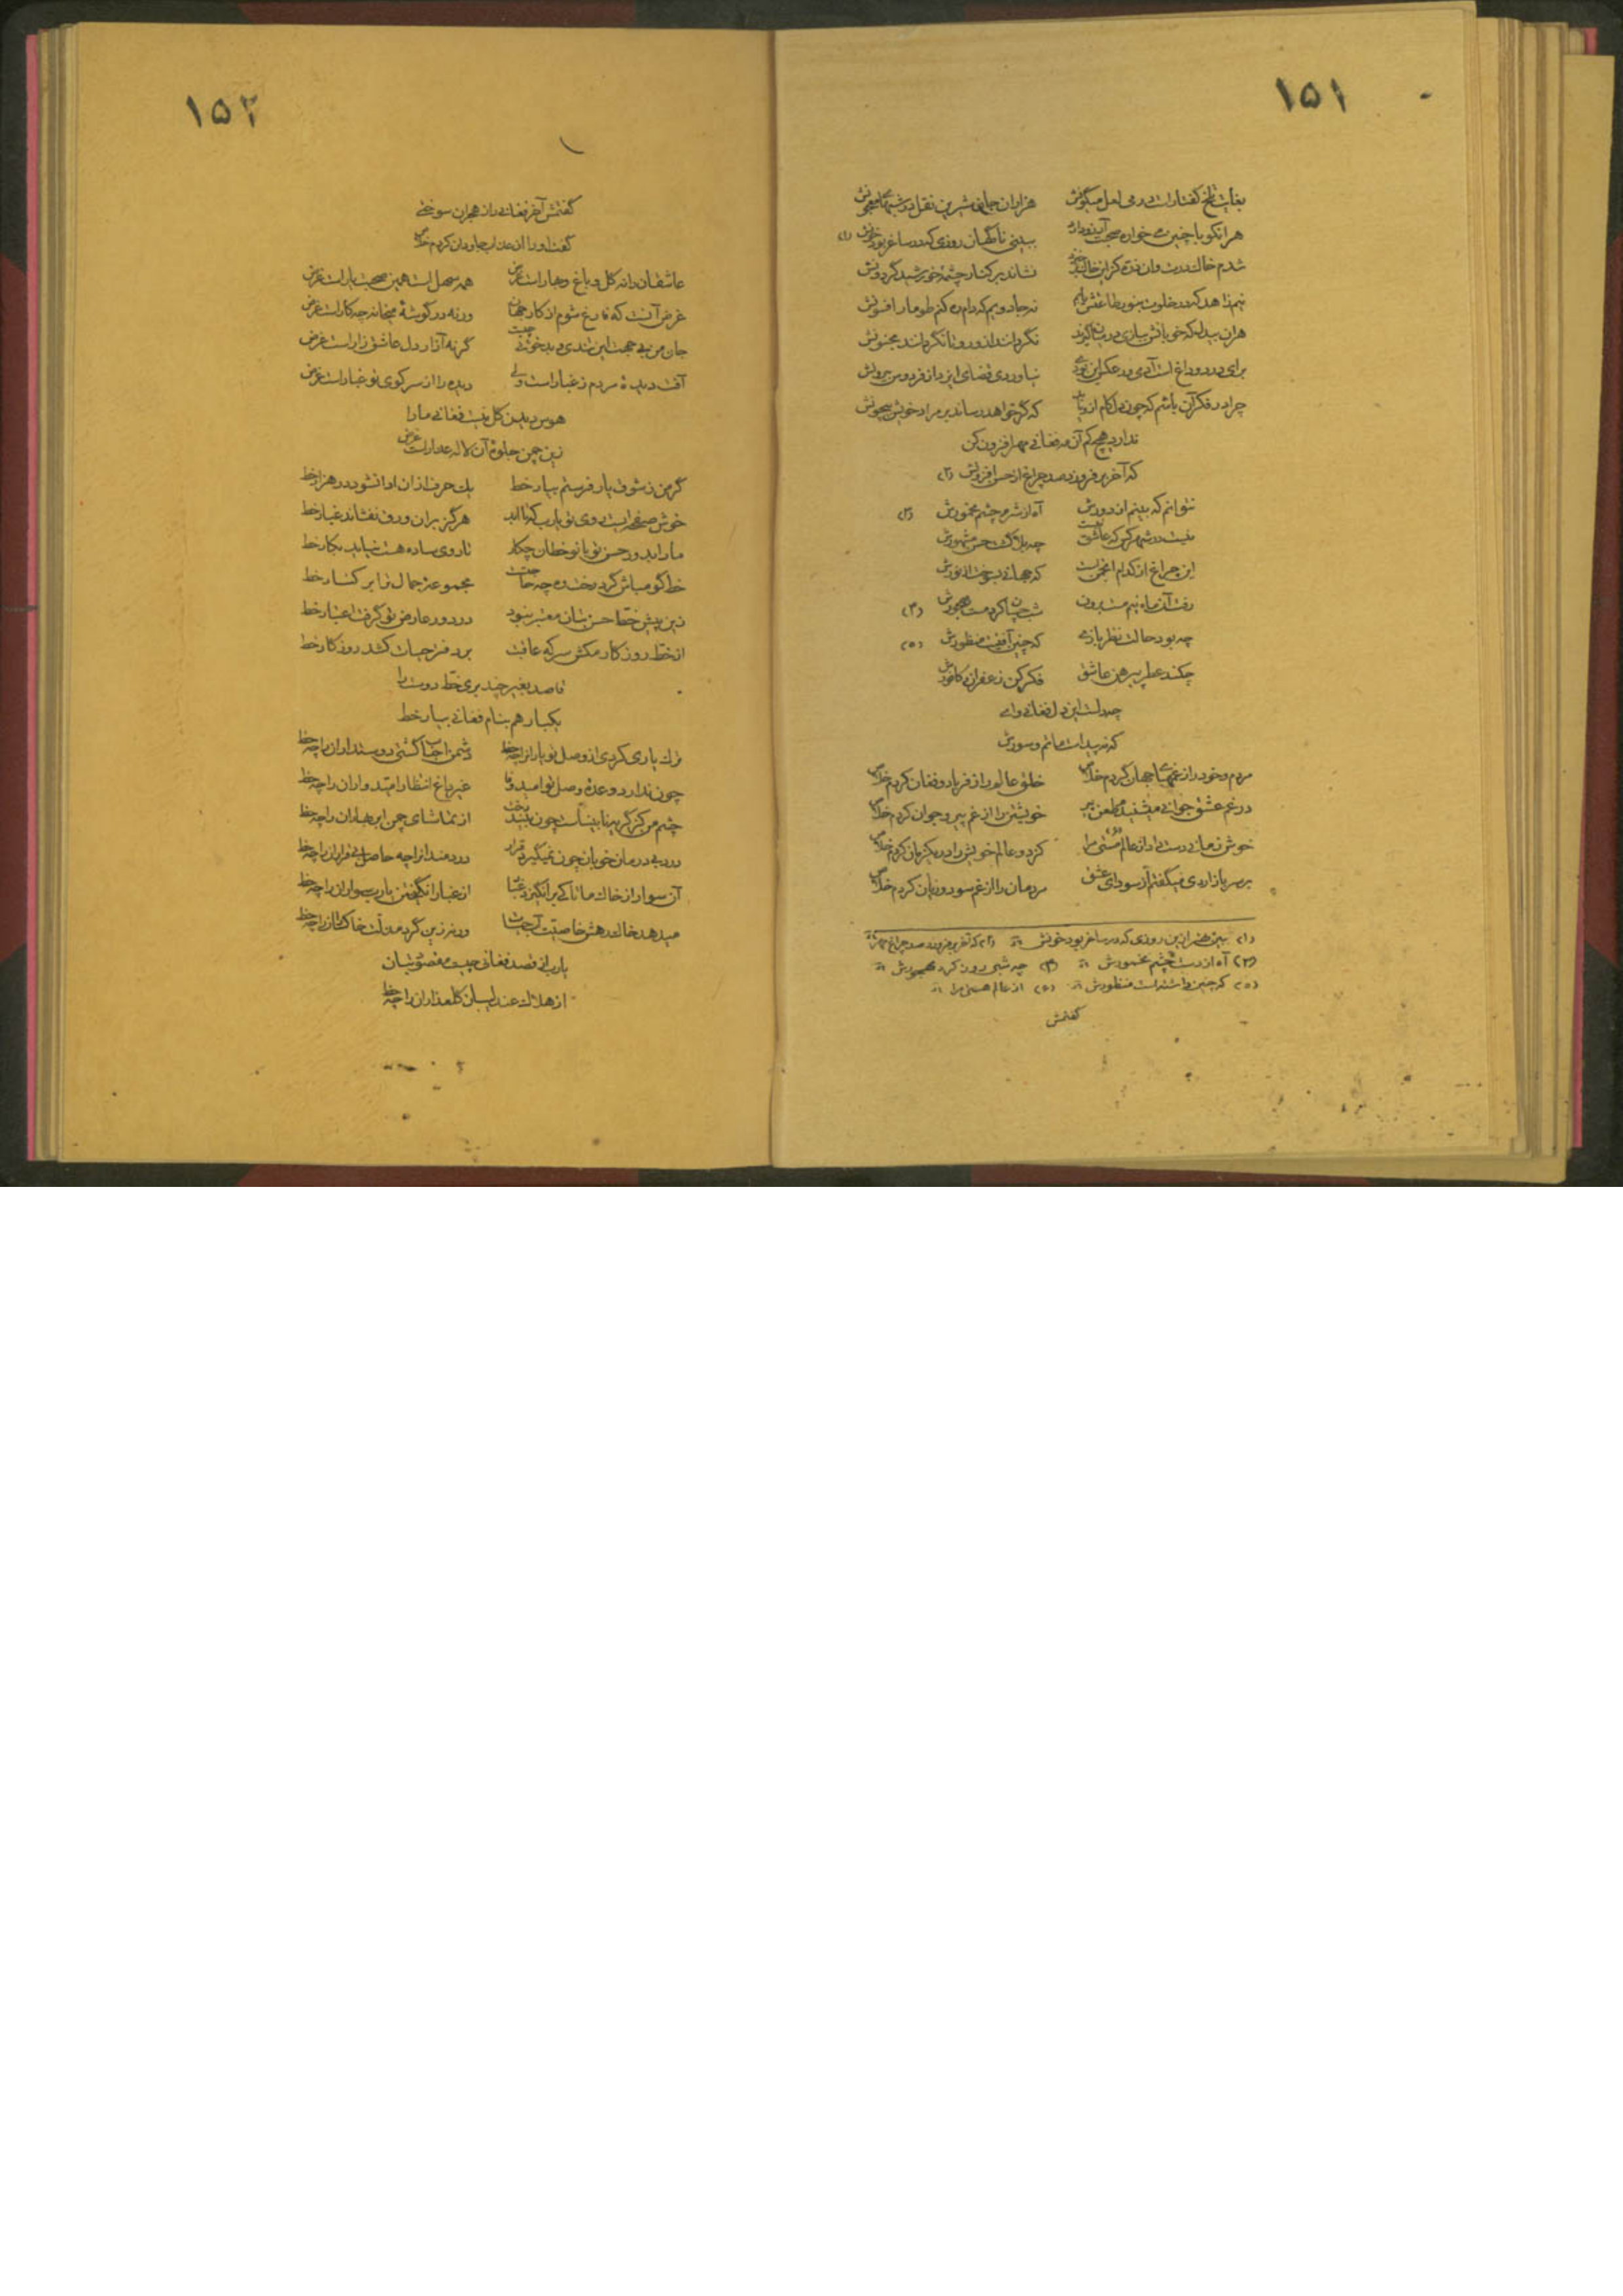 ۱۵۱
بغایت تلخ گفتار است در می لعل میگونش هزاران جان شیرین نقل در شبهای
هر انکو با چنین می خواره صحبت آرزو دارد ببینی ناگهان روزی که در ساغر بود خونش (۱)
شدم خاک درت وان نشاند بر کنار چشمه خورشید گردونش
نیم زاهد که در خلوت بنور طاعتش یابم نه جادویم که دام ره کنم طومار افسونش
هران بیدل که خو با نگردانند ازو رو تا نگردانند مجنونش
برای درد و داغ است آدمی نیاوردی قضای ایزد از فردوس بیرونش
چرا در فکر آن باشم که چون دل کام ازو یابد که گر خواهد رساند بر مراد خویش بیچونش
ندارد هیچ کم آن مه فغانی مهر افزون کن
که آخر بر فروزد صد چراغ از حسن افزونش (۲)
نتوانم که بینم از دورش آه از شرم چشم مخمورش (۳)
نیست در شهر کس که عاشق نیست چه بلا گشت حسن مشهورش
این چراغ از کدام انجمن است که جهانی بسوخت از نورش
رفت آن ماه نیم مست برون (۴)
چه بود حالت نظر بازی که چنین آفتیست منظورش (۵)
چکند عطر پیرهن عاشق فکر کن زعفران و کافورش
چه دلست این دل فغانی وای
که نه پیداست ماتم و سورش
مردم و خود را ز غمهای جهان کردم خلاص خلق عالم را ز فریاد و فغان کردم خلاص
در غم عشق جوانی میشنیدم طعن پیر خویشتن را از غم پیر و جوان کردم خلاص
خوش زمانی دست داد از عالم مستی مرا کز دو عالم خویش را در یک زمان کردم خلاص
بر سر بازار دی میگفتم از سودای عشق مردمان را از غم سود و زیان کردم خلاص
(۱) روزی که در ساغر بود خونش (۲) که آخر بر فروزد صد چراغ
(۳) آه از دست چشم مخمورش (۴) چه شبی روز کرد مهجورش
(۵) که چنین واشده است منظورش (۵) از عالم هستی مرا
گفتمش
۱۵۲
گفتمش آخر فغانی را ز هجران سوختی
گفت او را از عذاب جاودان کردم خلاص
عاشقان را نه گل و باغ و بهار است غرض همه سهل است همین صحبت یار است غرض
غرض آنست که فارغ شوم از کار جهان ورنه در گوشه میخانه چه کار است غرض
جان من بی جهت این تندی و بدخویی چیست گر نه آزار دل عاشق زار است غرض
آفت دیده مردم ز غبار است ولی دیده را از سر کوی تو غبار است غرض
هوس دیدن گل نیست فغانی ما را
زین چمن جلوه آن لاله عذار است غرض
گر من ز شوق یار فرستم بیار خط یک حرف از آن ادا نشود در هزار خط
خوش صفحه ایست روی تو یارب که تا ابد هرگز بر آن ورق نفشاند غبار خط
ما را بدور حسن تو با نو خطان چکار تا روی ساده هست نیاید بکار خط
خط گو مباش گرد رخت ره چه حاجت مجموعه جمال ترا بر کنار خط
زین پیش خط حسن بتان معتبر نبود در دور عارض تو گرفت اعتبار خط
از خط روزگار مکش سر که عاقبت بر دفتر حیات کشد روزگار خط
قاصد بغیر چند بری خط دوست را
یکبار هم بنام فغانی بیار خط
ترک یاری کردی از وصل تو یاران را چه حظ دشمن احباب گشتی دوستداران را چه حظ
چون ندارد وعده وصل تو امید وفا غیر داغ انتظار امیدواران را چه حظ
چشم من کز گریه نابیناست چون بیند رخت از تماشای چمن ابر بهاران را چه حظ
درد بی درمان خوبان چون نمیگیرد قرار دردمند از چه حاصل بی قراران را چه حظ
آن سوار از خاک ما تا کی بر انگیزد غبار از غبار انگیختن یارب سواران را چه حظ
میدهد خاک رهش خاصیت آب حیات ورنه زین گرد مذلت خاکساران را چه حظ
یارب از قصد فغانی چیست مقصود بتان
از هلاک عندلیبان گلعذاران را چه حظ